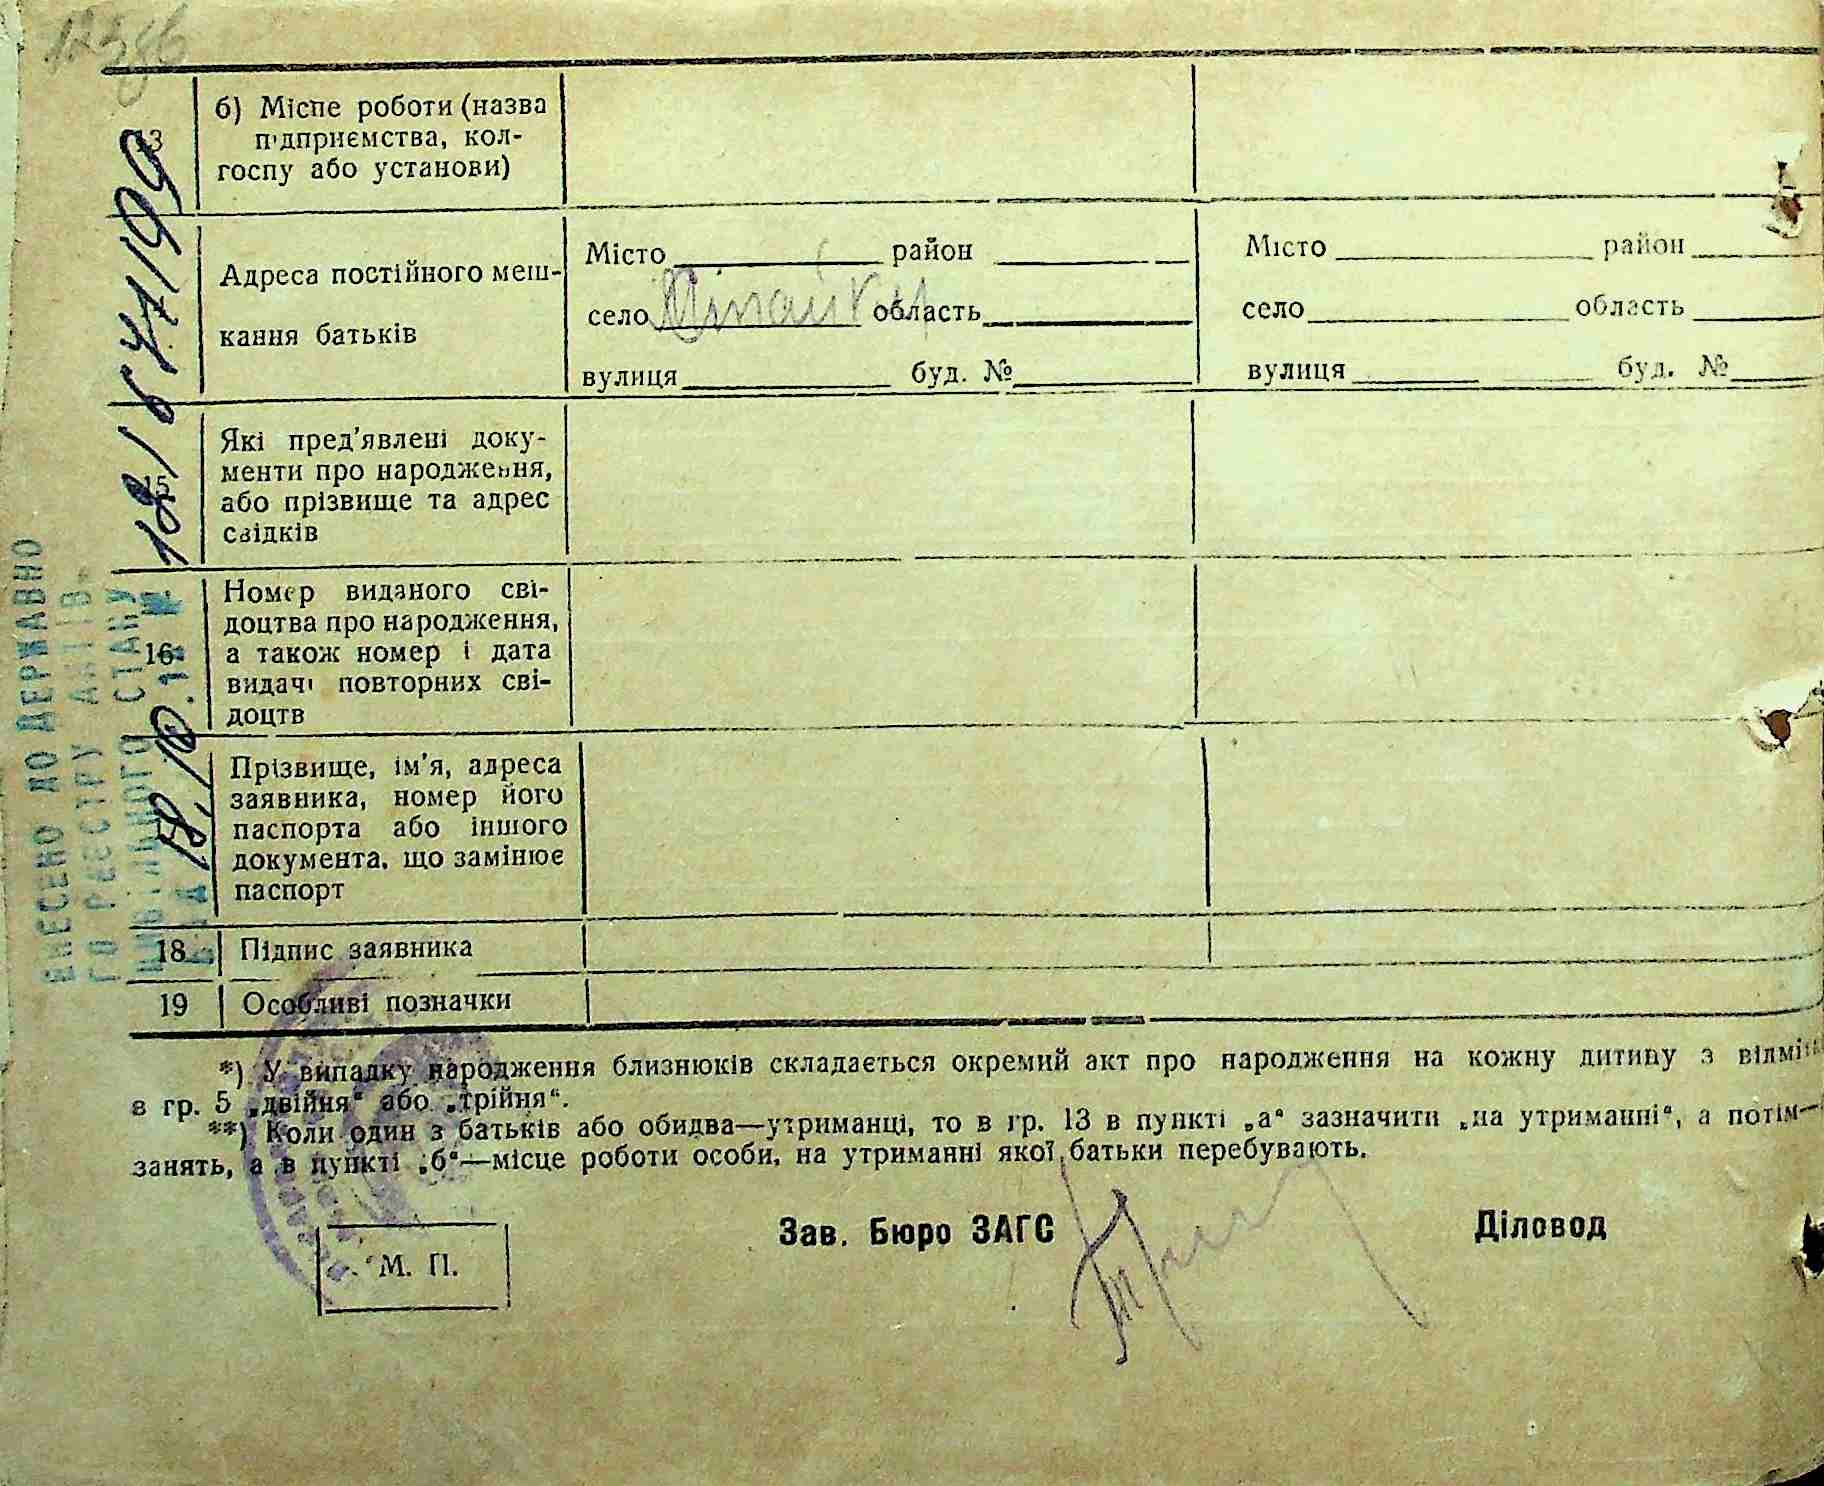 12386
13
б) Місце роботи (назва
підприємства, кол-
госпу або установи)
Адреса постійного меш-
кання батьків
Місто район
село Липайки область
вулиця буд. №
Місто район
село область
вулиця буд. №
15
Які пред'явлені доку-
менти про народження,
або прізвище та адрес
свідків
16
Номер виданого сві-
доцтва про народження,
а також номер і дата
видачі повторних сві-
доцтв
Прізвище, ім'я, адреса
заявника, номер його
паспорта або іншого
документа, що замінює
паспорт
18 Підпис заявника
19 Особливі позначки
ВНЕСЕНО ДО ДЕРЖАВНО
ГО РЕЄСТРУ АКТІВ
ЦИВІЛЬНОГО СТАНУ
*) У випадку народження близнюків складається окремий акт про народження на кожну дитину з
в гр. 5 „двійня“ або „трійня“.
**) Коли один з батьків або обидва—утриманці, то в гр. 13 в пункті „а“ зазначити „на утриманні“, а потім—
занять, а в пункті „б“—місце роботи особи, на утриманні якої батьки перебувають.
Зав. Бюро ЗАГС Діловод
М. П.